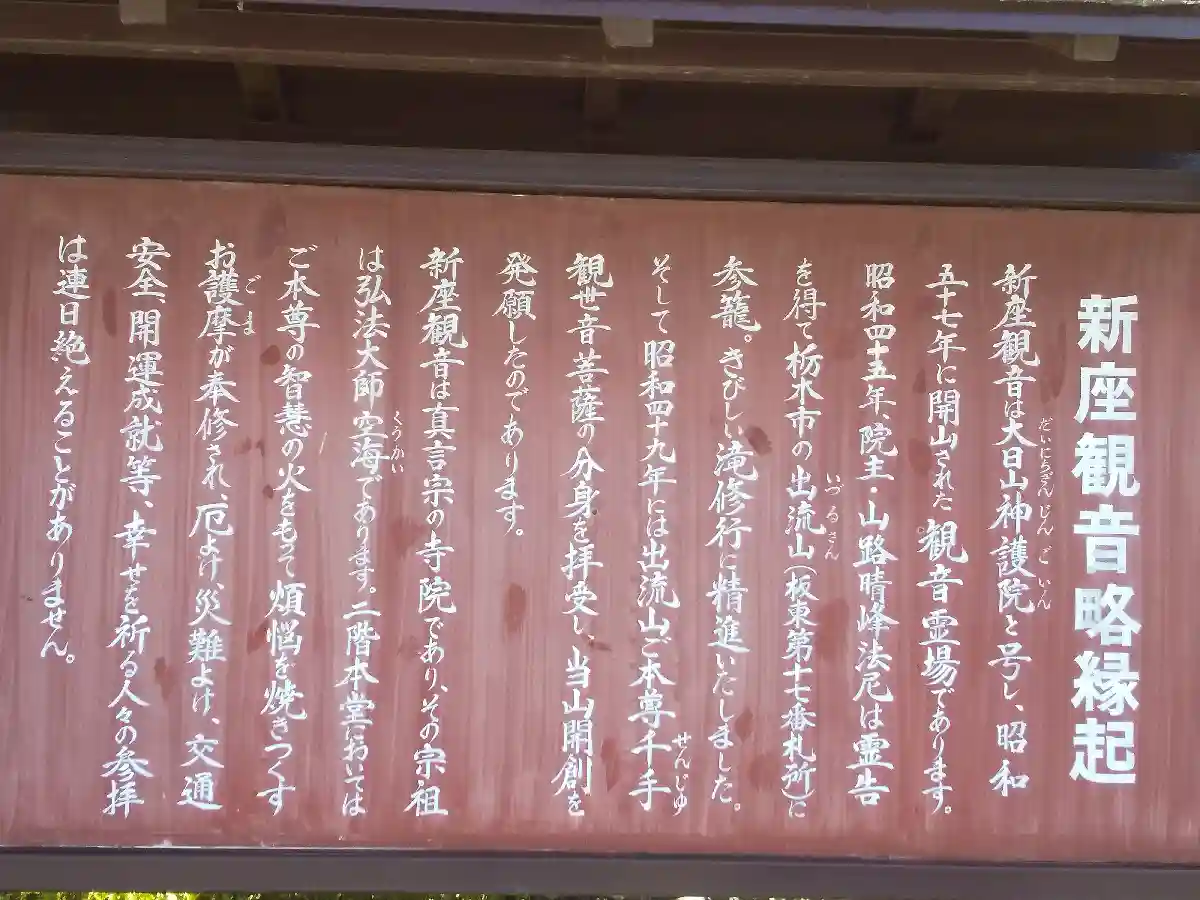 新座観音略縁起
新座観音は大日山神護院と号し、昭和
五十七年に開山された観音霊場であります。
昭和四十五年、院主・山路晴峰法尼は霊告
を得て栃木市の出流山(板東第十七番札所)に
参籠。きびしい滝修行に精進いたしました。
そして昭和四十九年には出流山ご本尊千手
観世音菩薩の分身を拝受し、当山開創を
発願したのであります。
新座観音は真言宗の寺院であり、その宗祖
は弘法大師空海であります。二階本堂においては
ご本尊の智慧の火をもって煩悩を焼きつくす
お護摩が奉修され、厄よけ、災難よけ、交通
安全、開運成就等、幸せを祈る人々の参拝
は連日絶えることがありません。
だいにちざんじんごいん
いづるさん
せんじゅ
くうかい
ごま